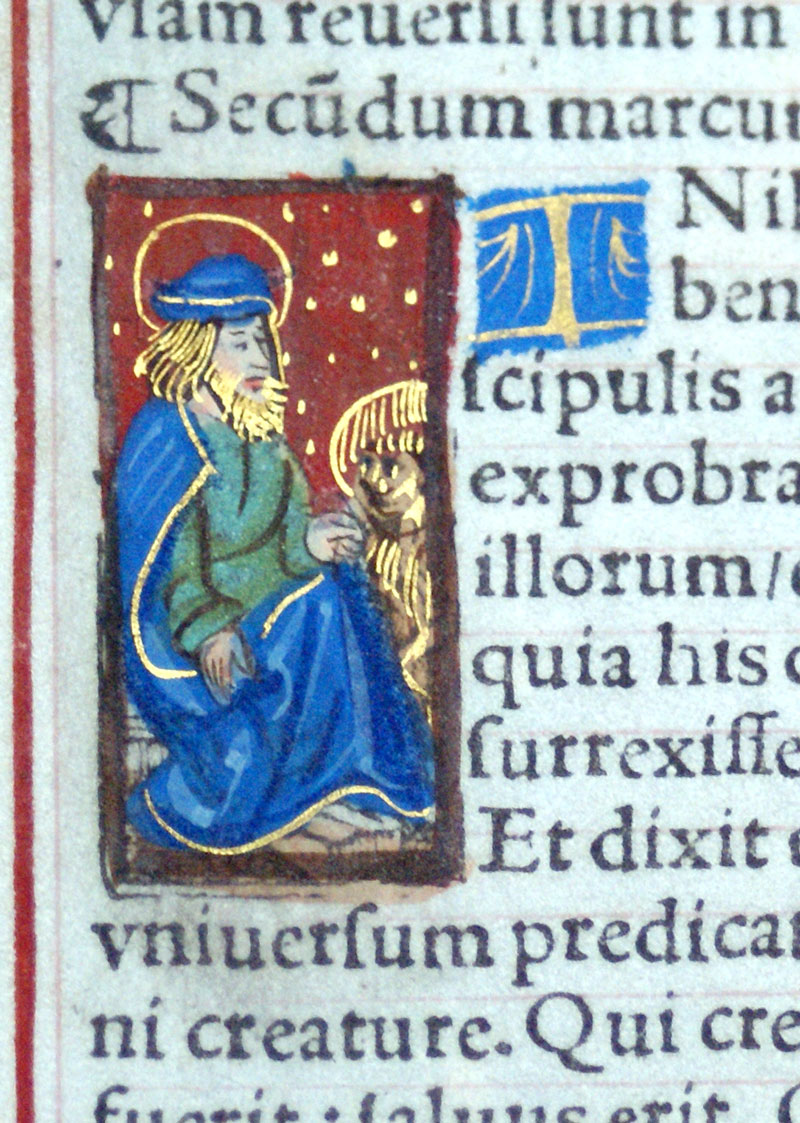 viam reuerſi ſunt in
¶ Secūdum marcu
I N il
ben
ſcipulis a
exprobra
illorum/
quia his
ſurrexiſſe
Et dixit
vniuerſum predica
ni creature. Qui cre
fuerit : ſaluus erit.